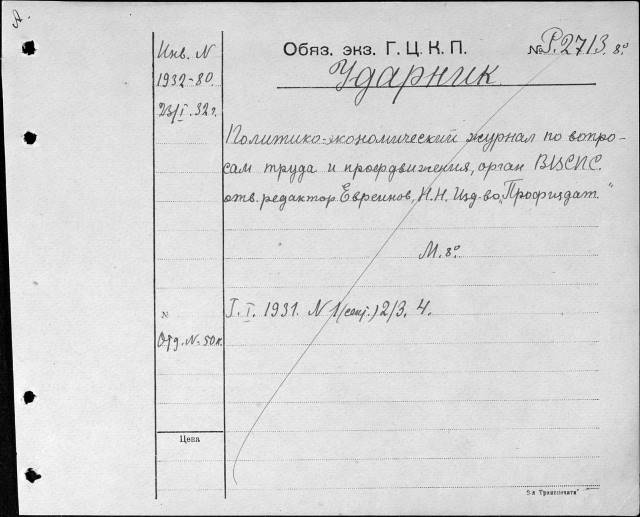 А.
Инв. N
1932-80.
23/I.32 г.
Обяз. экз. Г. Ц. К. П.
№ Р.2713. 8°
Ударник
Политико-экономический журнал по вопро-
сам труда и профдвижения, орган ВЦСПС.
отв. редактор Евреинов, Н.Н. Изд-во „Профиздат."
М. 8°.
N
Отд. N. 50 к.
I. I. 1931. N 1 (сент.) 2/3. 4.
Цена